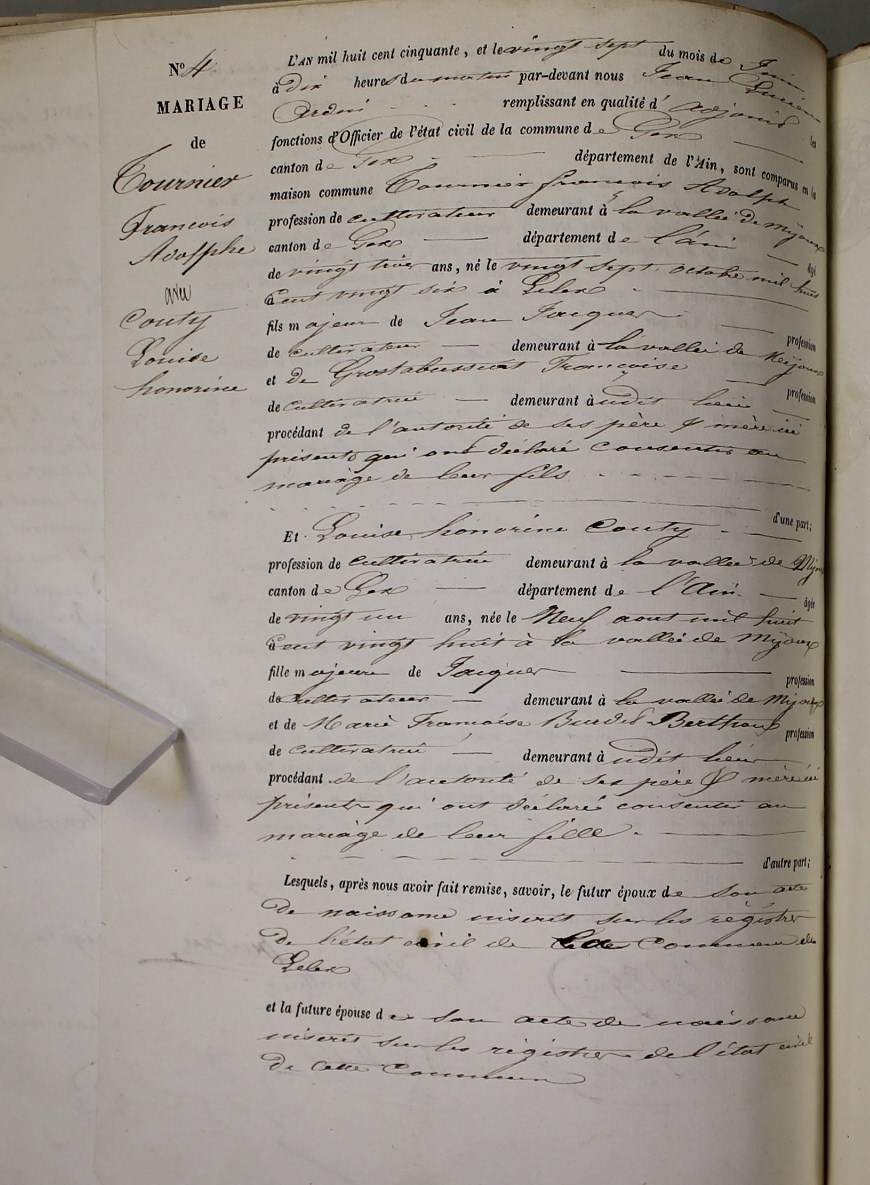 N.o 4
MARIAGE
de
Tournier
François
Adolphe
avec
Couty
Louise
honorine
L'AN mil huit cent cinquante, et le vingt sept du mois de Juin
à dix heures du matin par-devant nous Jean
remplissant en qualité d'adjoint les
fonctions d'Officier de l'état civil de la commune de Gex
canton de Gex département de l'Ain, sont comparus en la
maison commune Tournier françois Adolphe
profession de cultivateur demeurant à la vallée de Mijoux
canton de Gex département de l'Ain âgé
de vingt trois ans, né le vingt sept octobre mil huit
cent vingt six à Lelex
fils majeur de Jean Jacques profession
de cultivateur demeurant à la vallée de Mijoux
et de Grosfabussiat Françoise profession
de cultivatrice demeurant audit lieu
procédant de l'autorité de ses père & mère ici
présents qui ont déclaré consentir au
mariage de leur fils
d'une part;
Et Louise honorine Couty
profession de cultivatrice demeurant à la vallée de Mijoux
canton de Gex département de l'Ain âgée
de vingt un ans, née le Neuf aout mil huit
cent vingt huit à la vallée de Mijoux
fille majeure de Jacques profession
de cultivateur demeurant à la vallée de Mijoux
et de Marie Françoise Burdet Berthoux profession
de cultivatrice demeurant audit lieu
procédant de l'autorité de ses père & mère ici
présents qui ont déclaré consentir au
mariage de leur fille
d'autre part;
Lesquels, après nous avoir fait remise, savoir, le futur époux de son acte
de naissance inscrit sur les régistres
de l'état civil de la Commune de
Lelex
et la future épouse de son acte de naissance
inscrit sur les régistres de l'état civil
de cette Commune